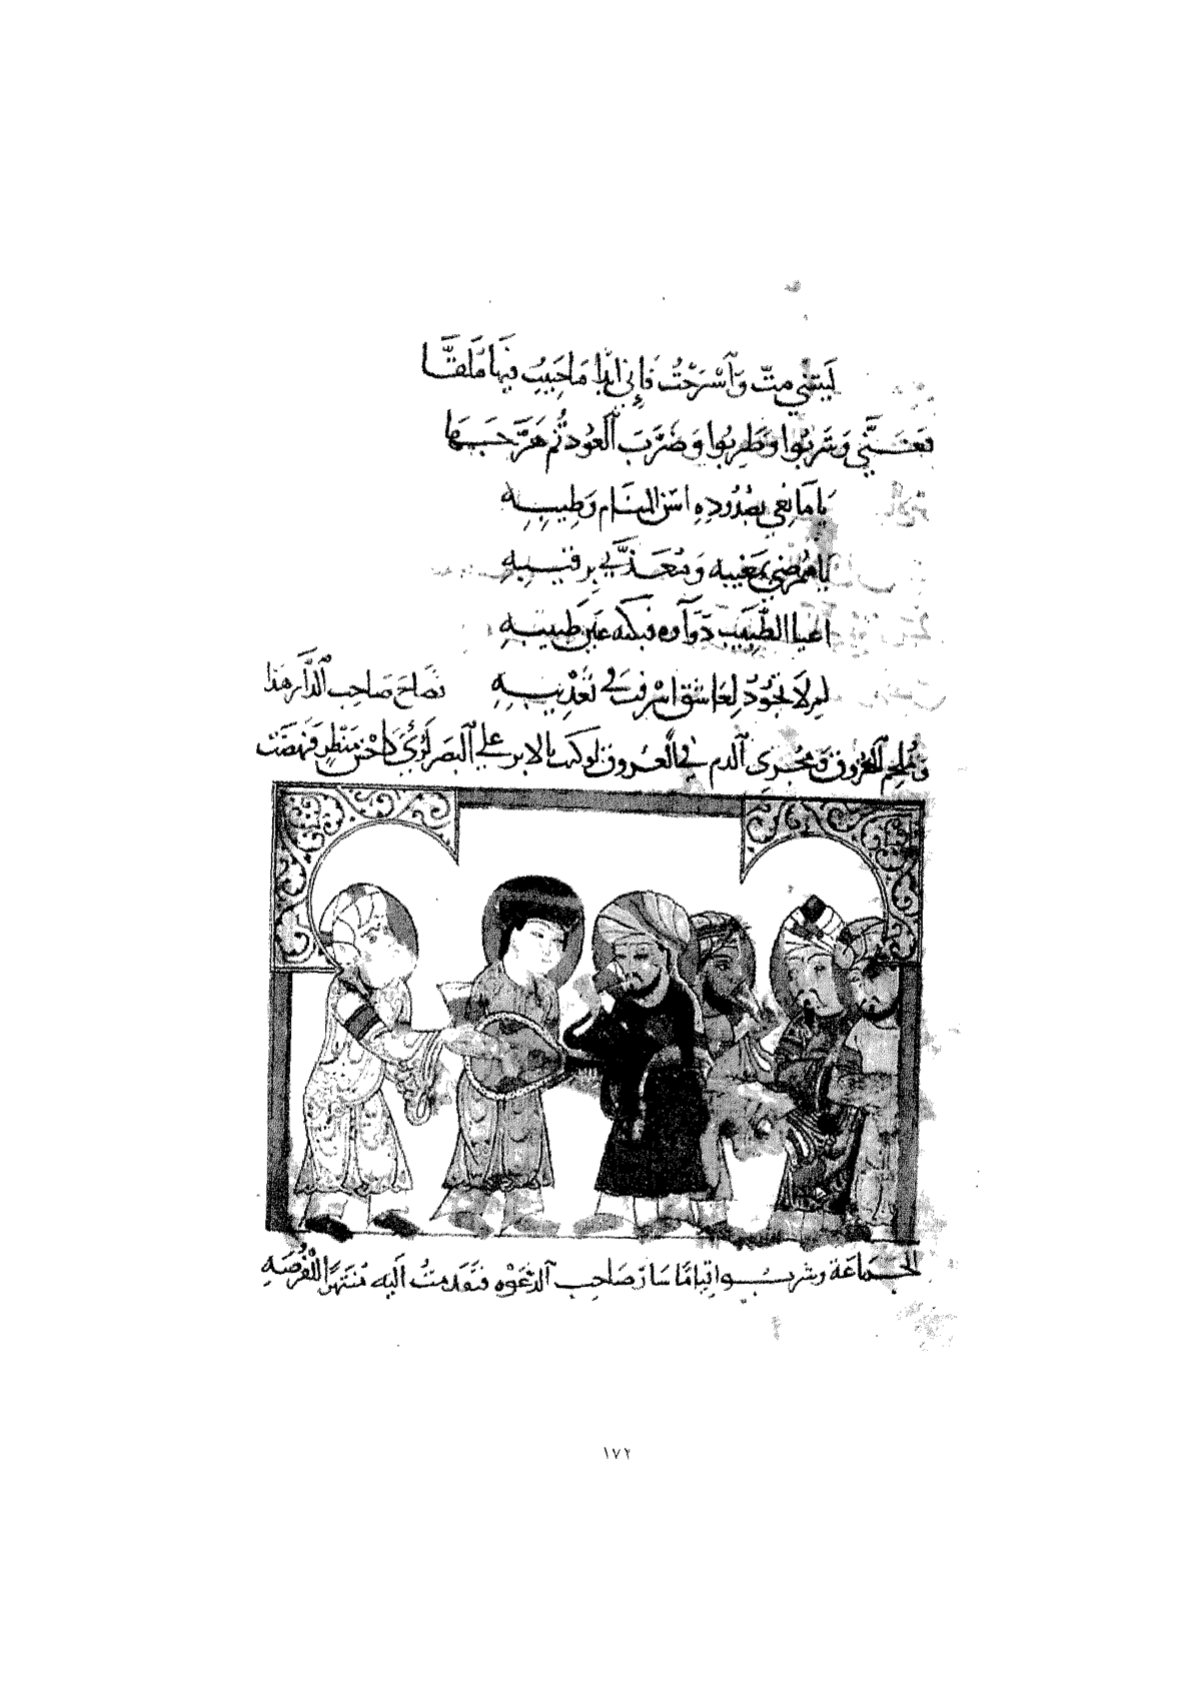 لَيتَني متّ وَٱسْتَرَحْتُ فَإِنِّي أبدًا مَا حَيِيتُ فيها مُلَقّا
فَغَنَّى وَشَربُوا وطَرِبُوا وَضَرَبَ ٱلعُود ثُم هَزَّج
يَا مَانِعِي بِصُدُودِهِ المنَام وَطِيبِهِ
يا مُمْرضِي بمَغيبه وَمُعَذِّبي بِرقيبِهِ
اعيا الطَّبِيبَ دَوَآوه عَين طَبيبِهِ
لم لَا تَجُودُ لِعَاشقٍ اسْرفتَ في تَعْذِيبِهِ فصَاحَ صَاحِب ٱلدَّار هَذا
وَمُلحِم ٱلعُروق وَمُجْرِي ٱلدم في ٱلعُروق لو كتب بالابر علي ٱلبَصَر مَنظَرٍ فَنهضَت
الجَمَاعَة وشربُوا قِيَامًا سَارّ صَاحِب ٱلدَّعْوَه فتَقَدمتُ اليه مُنتَهزًا للفُرْصَه
١٧٢